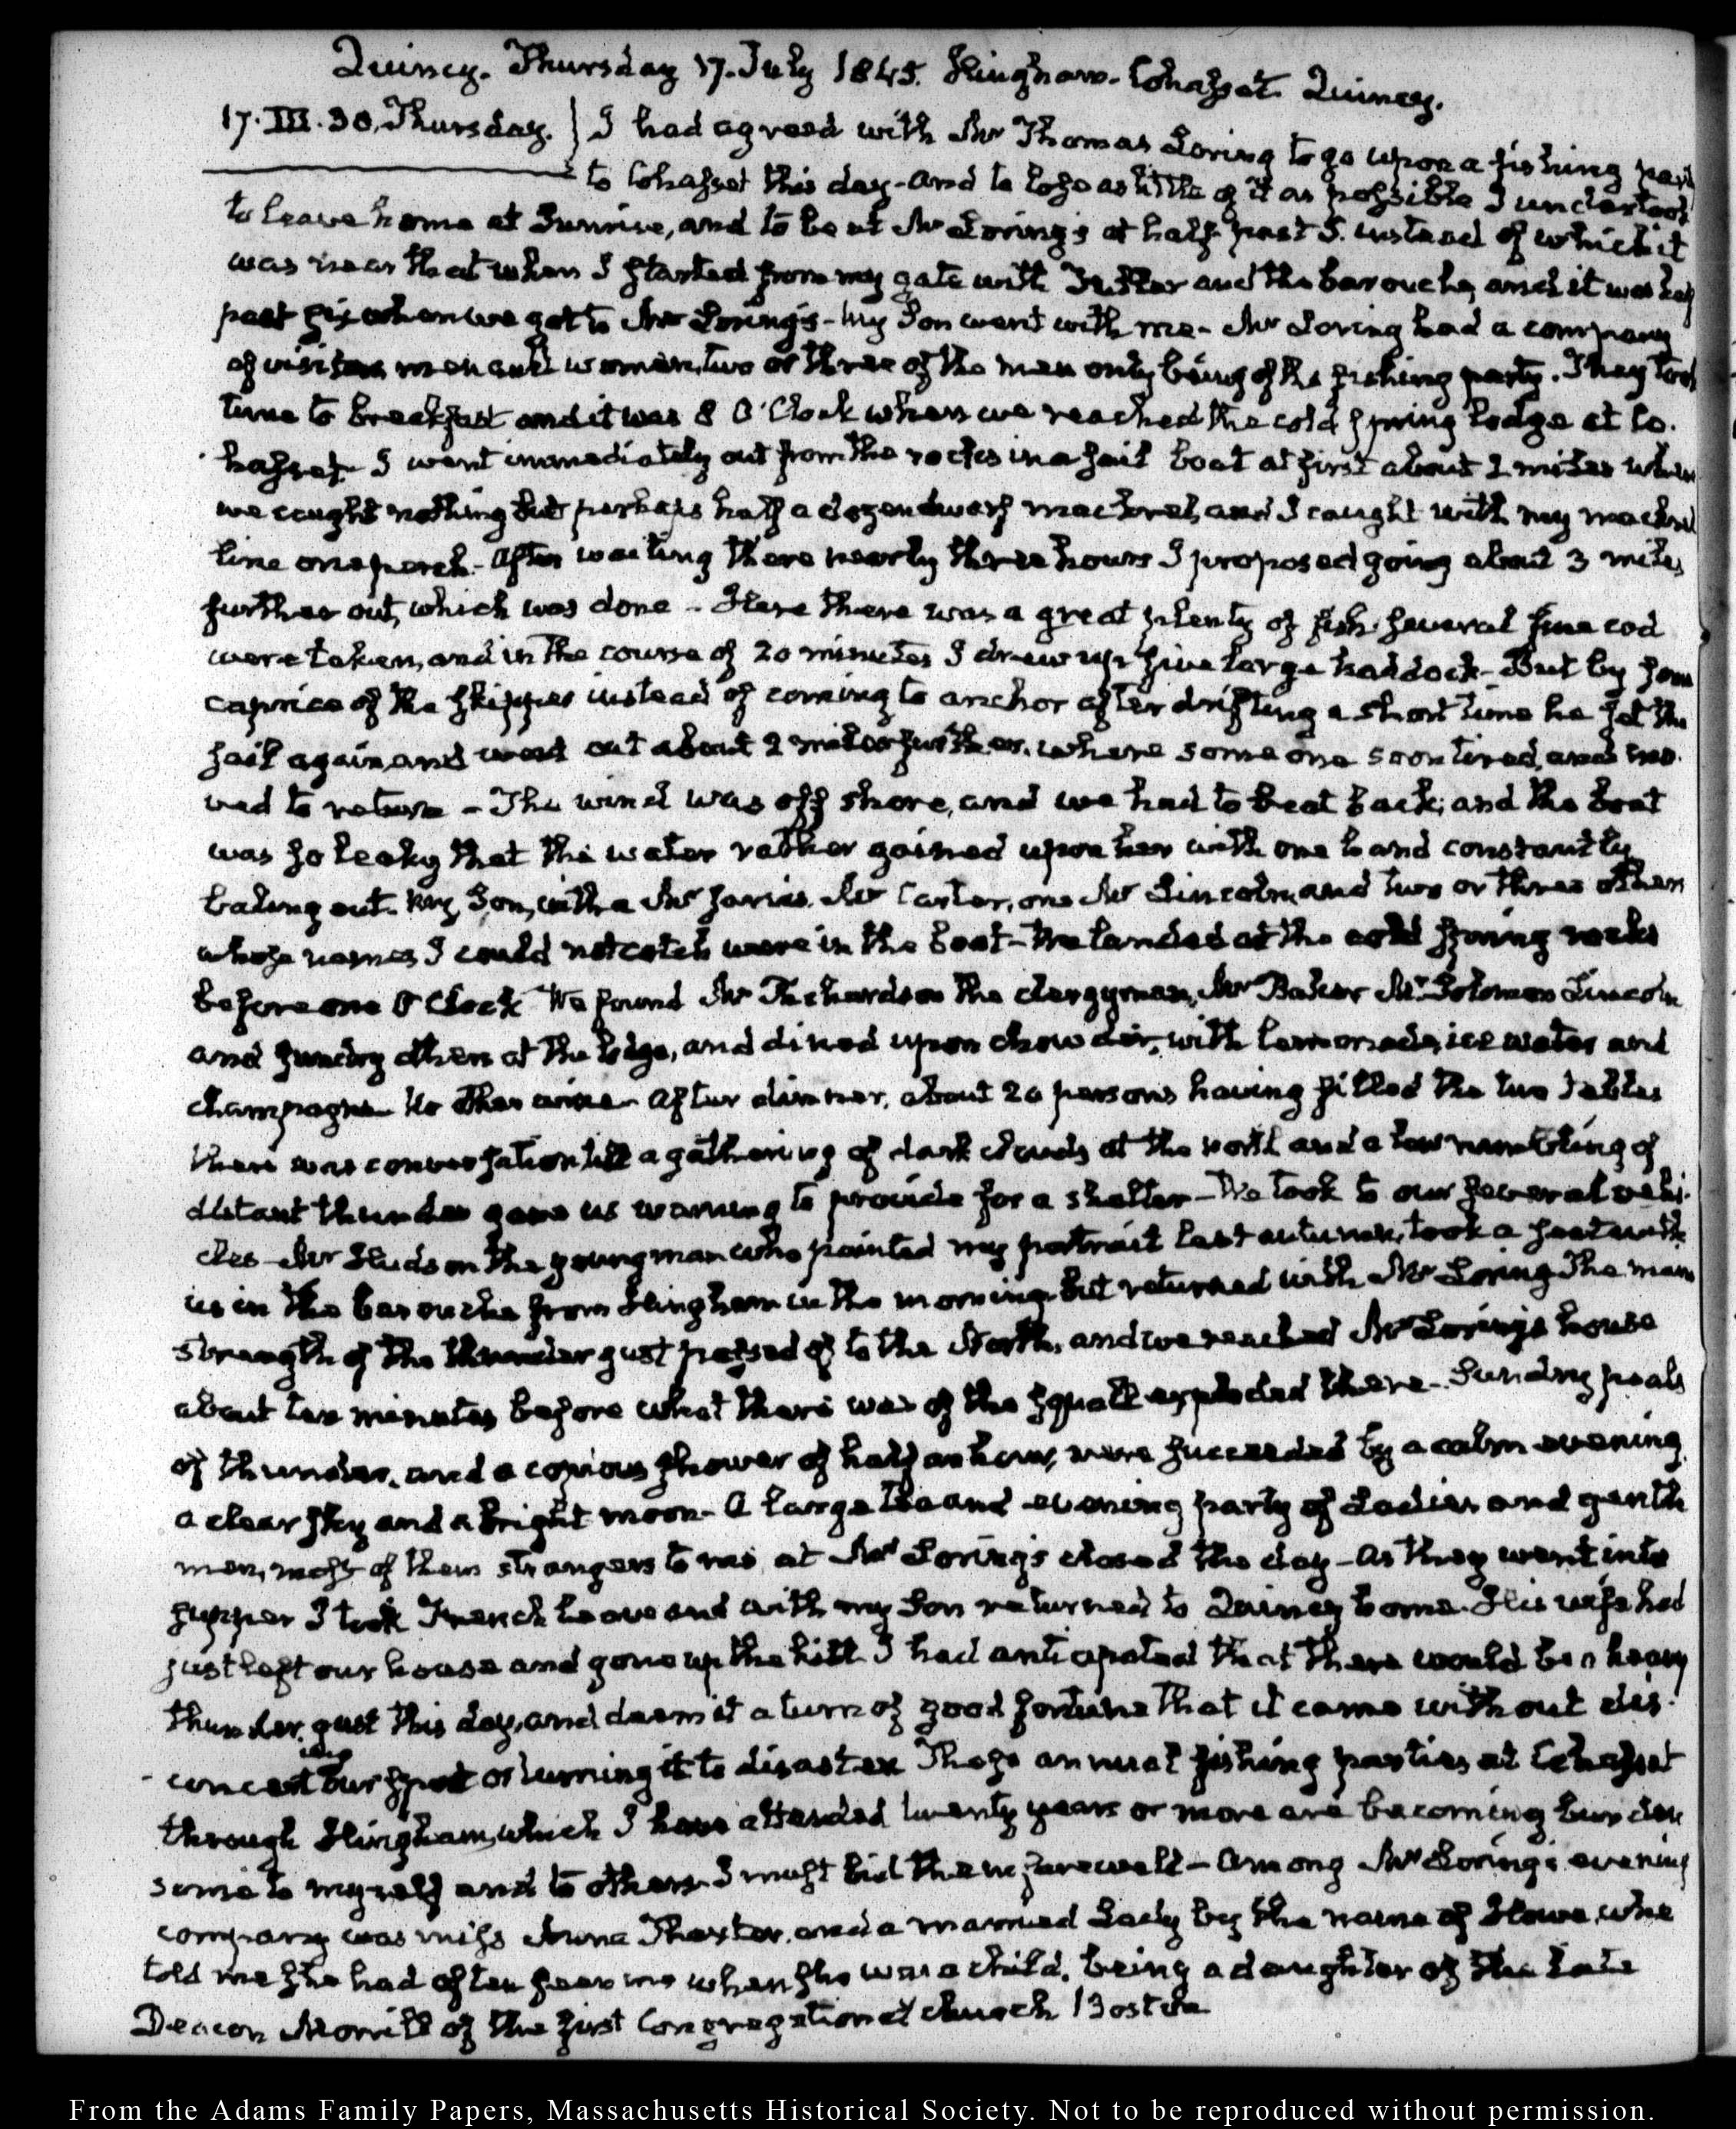 Quincy. Thursday 17. July 1845. Hingham. Cohasset. Quincy.
17. III. 30. Thursday. } I had agreed with Mr Thomas Loring to go upon a fishing party
to Cohasset this day - and to lose as little of it as possible I undertook
to leave home at Sunrise, and to be at Mr Loring's at half past 5. instead of which it
was near that when I started from my gate with and the barouche, and it was half
past six when we got to Mr Loring's - My Son went with me - Mr Loring had a company
of visitors men and women, two or three of the men only being of the fishing party. They took
time to breakfast and it was 8 O'Clock when we reached the cold spring lodge at Co-
hasset. I went immediately out from the rocks in a sail boat at first about 2 miles where
we caught nothing but perhaps half a dozen dwarf mackerel, and I caught with my mackerel
line one perch - After waiting there nearly three hours I proposed going about 3 miles
further out, which was done - Here there was a great plenty of fish. several fine cod
were taken, and in the course of 20 minutes I drew up five large haddock - But by some
caprice of the skipper instead of coming to anchor after drifting a short time he set the
sail again, and went out about 2 miles further. where some one soon tired, and mo-
ved to return - The wind was off shore, and we had to beat back; and the boat
was so leaky that the water rather gained upon her with one hand constantly
baling out. My Son, with a Mr Jarvis. Mr Carter, one Mr Lincoln, and two or three others
whose names I could not catch were in the boat - We landed at the cold spring rocks
before one O'Clock We found Mr Richardson the clergyman, Mr Baker Mr Solomon Lincoln
and sundry others at the lodge, and dined upon chowder, with lemonade, ice water and
champagne. No other wine - After dinner, about 20 persons having filled the two tables
there was conversation till a gathering of dark clouds at the north and a low rumbling of
distant thunder gave us warning to provide for a shelter - We took to our several vehi-
cles - Mr Hudson the young man who painted my portrait last autumn, took a seat with
us in the barouche from Hingham in the morning. but returned with Mr Loring The main
strength of the thunder gust passed off to the North, and we reached Mr Loring's house
about ten minutes before what there was of the squall exploded there - Sundry peals
of thunder, and a copious shower of half an hour, were succeeded by a calm evening
a clear sky and a bright moon - A large tea and evening party of Ladies and gentle
men, most of them strangers to me, at Mr Loring's closed the day - As they went into
supper I took French leave and with my Son returned to Quincy home. His wife had
just left our house and gone up the hill. I had anticipated that there would be a heavy
thunder gust this day, and deem it a turn of good fortune that it came without dis-
concerting our sport or turning it to disaster. These annual fishing parties at Cohasset
through Hingham, which I have attended twenty years or more are becoming burden
some to myself and to others. I must bid them farewell - Among Mr Loring's evening
company was Miss Anna Thaxter, and a married Lady by the name of Howe, who
told me she had often seen me when she was a child, being a daughter of the late
Deacon Morrill of the first Congregational church Boston
From the Adams Family Papers, Massachusetts Historical Society. Not to be reproduced without permission.